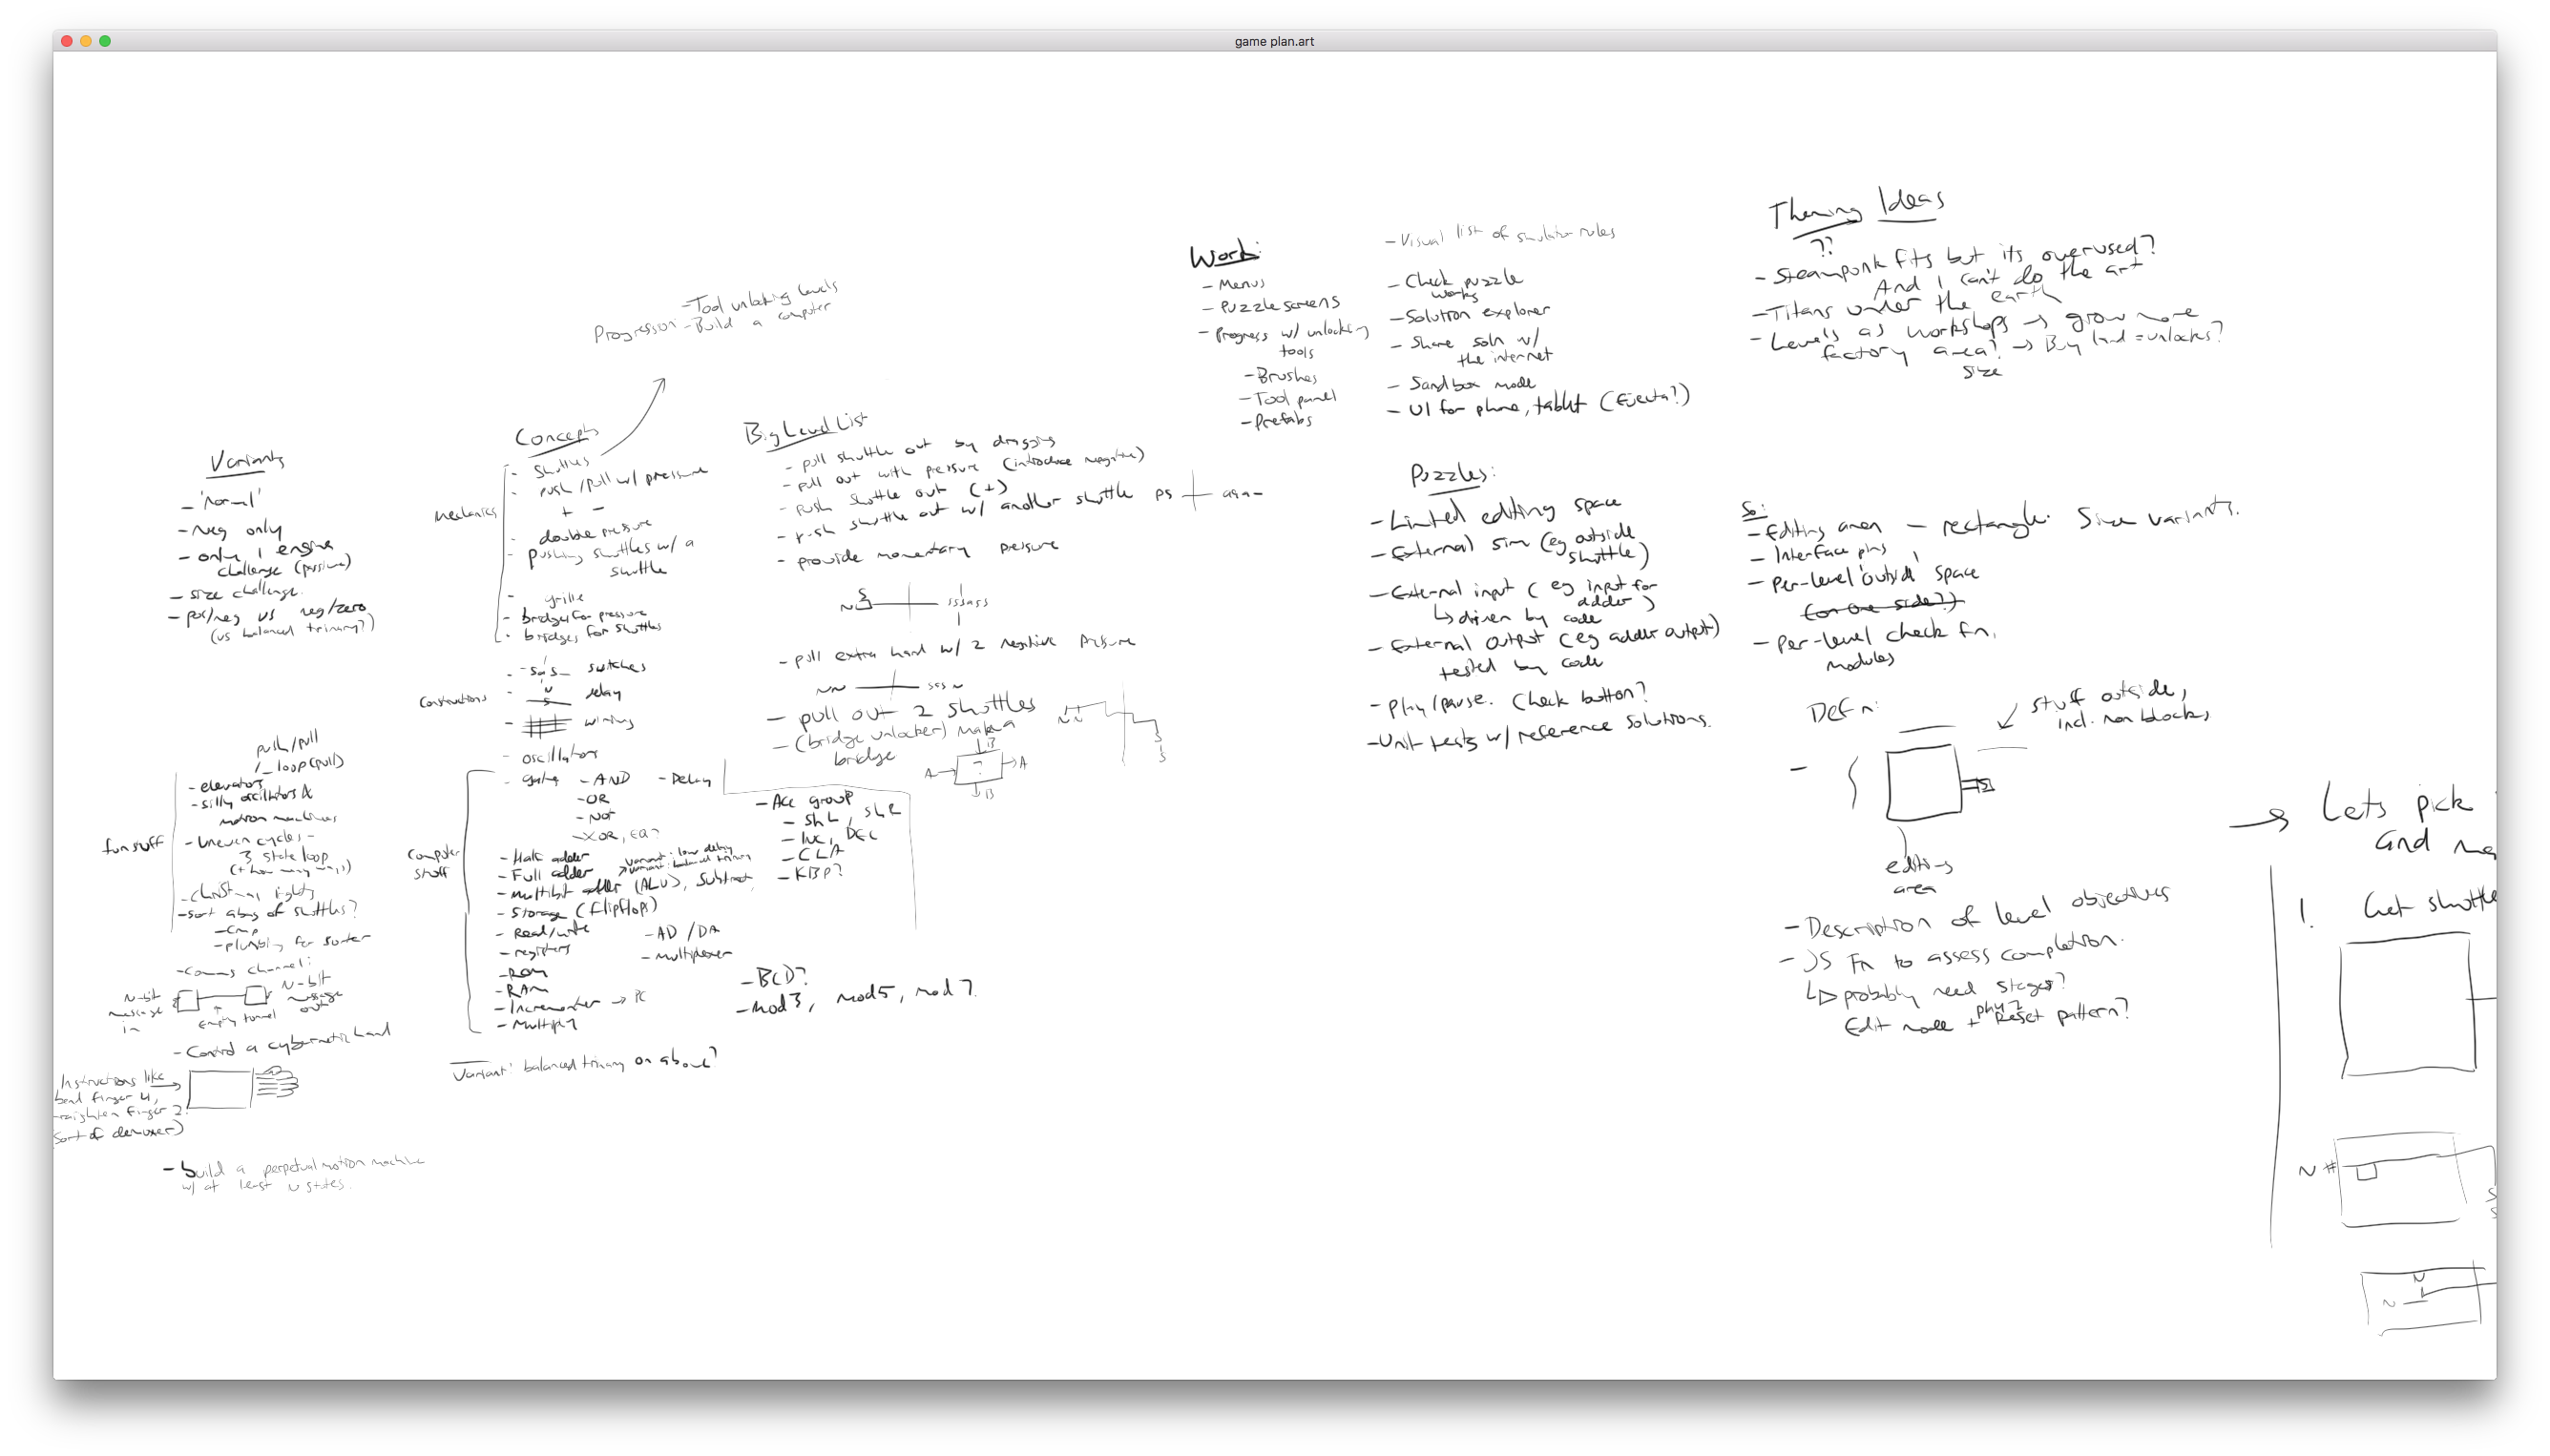 game plan.art
Progression
- Tool unlocking levels
- Build a computer
Variants
- 'normal'
- Neg only
- only 1 engine
challenge (passive)
- size challenge.
- pos/neg vs neg/zero
(vs balanced trinary?)
Concepts
Mechanics
- Shuttles
- push/pull w/ pressure
+ -
- double pressure
- pushing shuttles w/ a
shuttle
- grille
- bridges for pressure
- bridges for shuttles
Constructions
- switches
- delay
- wiring
- oscillators
Computer
stuff
- AND - Delay
- OR
- Not
- XOR, EQ?
- Half adder
- Full adder
variant: low delay
variant: balanced trinary
- multibit adder (ALU), subtract
- Storage (flipflops)
- Read/write
- registers
- AD / DA
- Multiplexer
- ROM
- RAM
- Incrementer → PC
- Multiply
Variant: balanced trinary on above?
- Acc group
- ShL, ShR
- Inc, DEC
- CLA
- KBP?
- BCD?
- Mod 3, mod 5, mod 7
fun stuff
push/pull
loop (pull)
- elevators
- silly oscillators &
motion machines
- Uneven cycles -
3 state loop
- Christmas lights
- sort a bag of shuttles?
- Cmp
- plumbing for sorter
- Comms channel:
N-bit
message
in
empty tunnel
N-bit
message
out
- Control a cybernetic hand
Instructions like
bend finger 4,
raighten finger 2.
(sort of demuxer)
- build a perpetual motion machine
w/ at least N states.
Big Level List
- pull shuttle out by dragging
- pull out with pressure (introduce negative)
- push shuttle out (+)
- push shuttle out w/ another shuttle
- provide momentary pressure
- pull extra hard w/ 2 negative pressure
- pull out 2 shuttles
- (bridge unlocker) make a
bridge
A ? A
B
B
Work:
- Menus
- Puzzle screens
- Progress w/ unlocking
tools
- Brushes
- Tool panel
- Prefabs
- Visual list of simulator rules
- Check puzzle
works
- Solution explorer
- Share soln w/
the internet
- Sandbox mode
- UI for phone, tablet (Ejecta?)
Theming Ideas
??
- Steampunk fits but its overused?
And I can't do the art
- Titans under the earth
- Levels as workshops → grow more
factory area? → Buy land = unlocks?
size
Puzzles:
- Limited editing space
- External sim (eg outside
shuttle)
- External input (eg input for
adder)
↳ driven by code
- External output (eg adder output)
tested by code
- Play/pause. Check button?
- Unit tests w/ reference solutions.
So:
- Editing area - rectangle. Size variants.
- Interface pins
- Per-level 'outside' space
(on one side?)
- Per-level check fn.
modules
Defn:
stuff outside,
incl. non blocks
editing
area
- Description of level objectives
- JS Fn to assess completion.
↳ probably need stages?
Edit mode + play? Reset pattern?
→ Lets pick
and
1. Get shuttle
N #
N
N